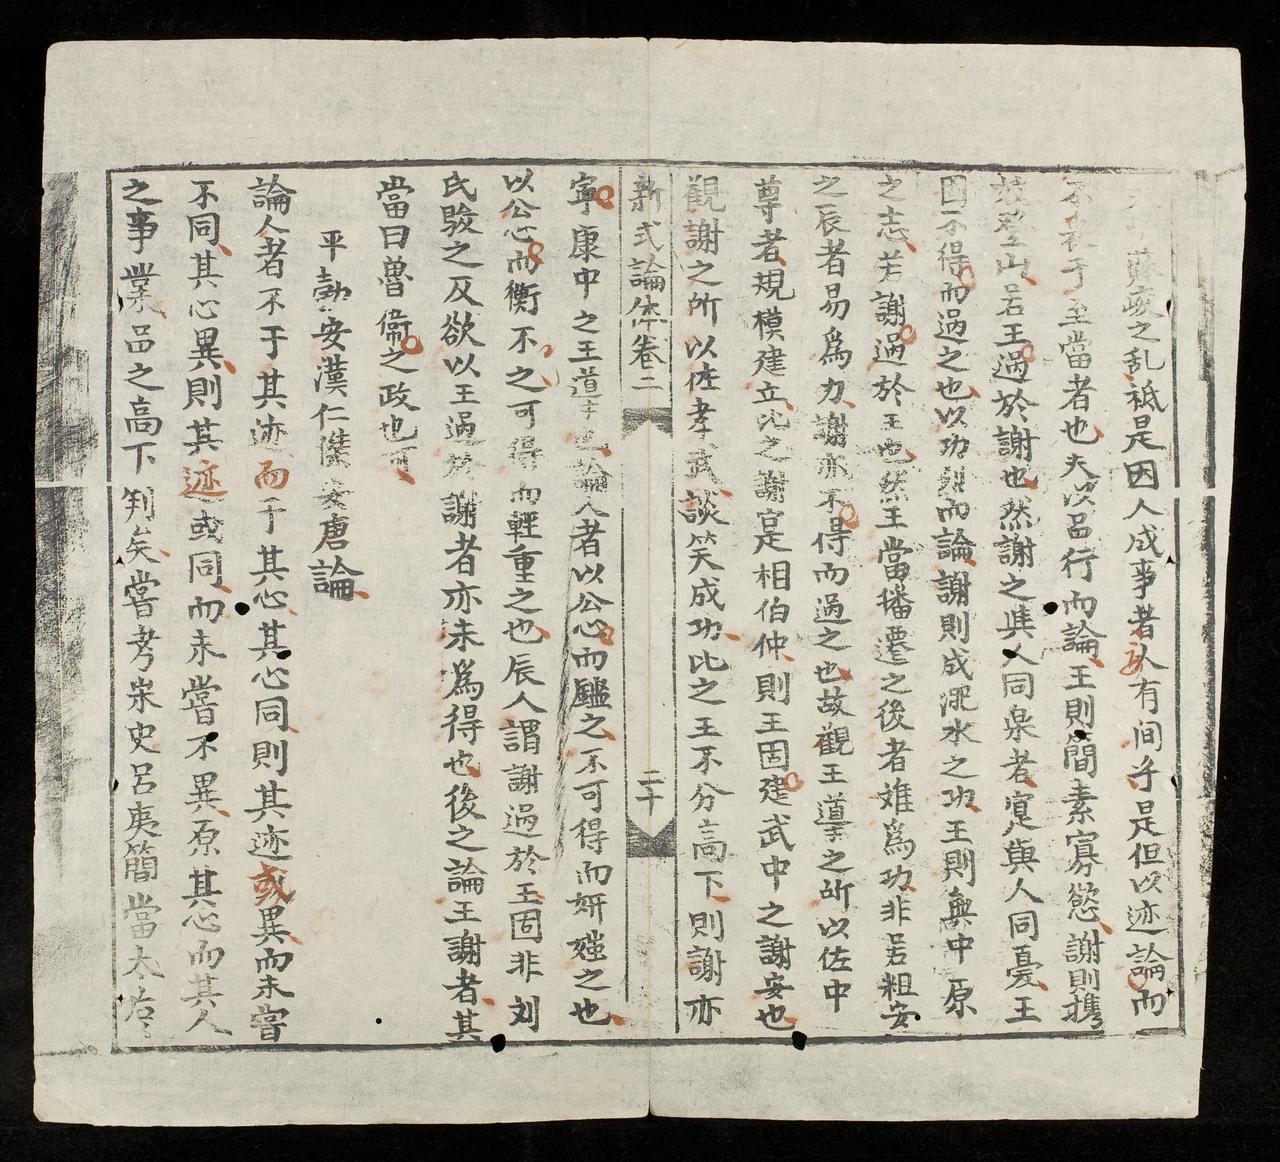 蘇峻之乱祗是因人成事者人有间乎是但以迹論而
不衷于至當者也夫次吕行而論王則簡素寡慾謝則携
妓登山若王過於謝也然謝之與人同樂者寔與人同憂王
固不得而過之也以功烈而論謝則成淝水之功王則無中原
之志若謝過於王也然王當播遷之後者难爲功非若粗安
之辰者易爲力謝亦不得而過之也故觀王導之所以佐中
尊者規模建立比之謝寔相伯仲則王固建武中之謝安也
觀謝之所以佐孝武談笑成功比之王不分高下則謝亦
新式論体卷二
二十
寧康中之王導也論人者以公心而鑑之不可得而妍媸之也
以公心而衡不之可得而輕重之也辰人謂謝過於王固非刘
氏駿之及欲以王過於謝者亦未爲得也後之論王謝者其
當曰魯衞之政也可
平勃安漢仁傑安唐論
論人者不于其迹而于其心其心同則其迹或異而未嘗
不同其心異則其迹或同而未嘗不異原其心而其人
之事業吕之高下判矣嘗考宋史吕夷簡當太后